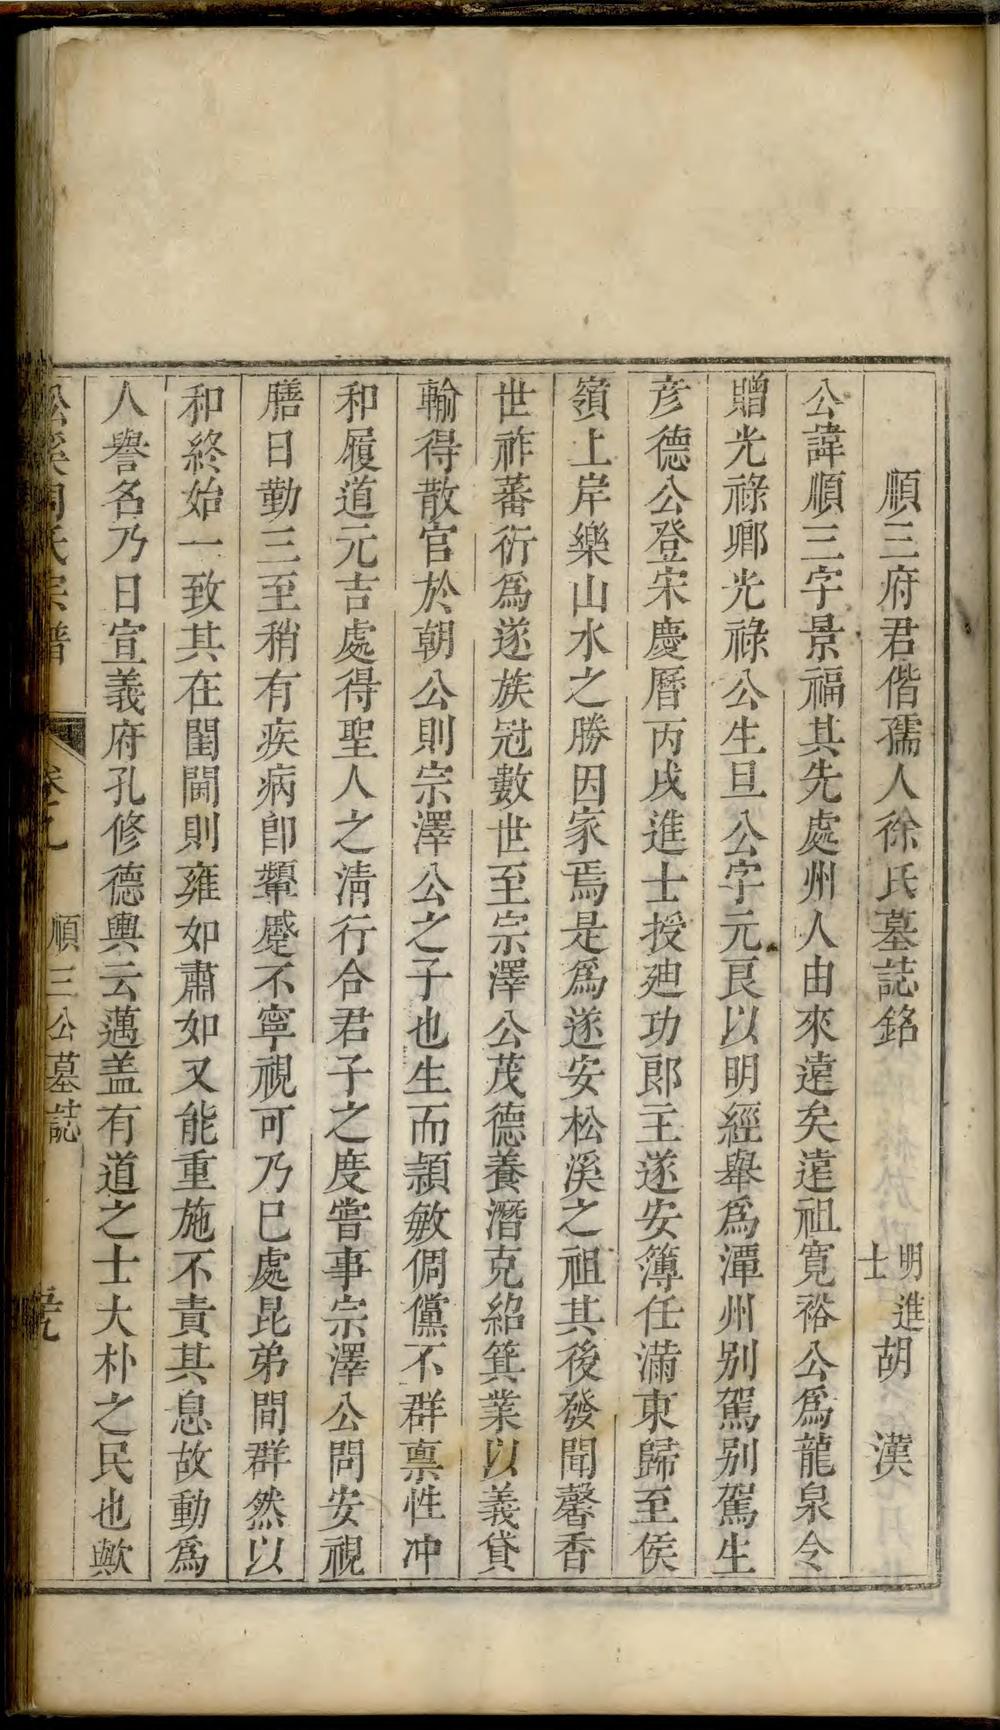 順三府君偕孺人徐氏墓誌銘 明進士胡漢
公諱順三字景福其先處州人由來遠矣遠祖寬裕公爲龍泉令
贈光祿卿光祿公生旦公字元良以明經舉爲潭州別駕別駕生
彥德公登宋慶曆丙戌進士授廸功郎主遂安簿任滿東歸至侯
嶺上岸樂山水之勝因家焉是爲遂安松溪之祖其後發聞馨香
世祚蕃衍爲遂族冠數世至宗澤公茂德養潛克紹箕業以義貸
輸得散官於朝公則宗澤公之子也生而頴敏倜儻不群禀性冲
和履道元吉處得聖人之淸行合君子之度嘗事宗澤公問安視
膳日勤三至稍有疾病卽顰蹙不寧視可乃已處昆弟間群然以
和終始一致其在閨閫則雍如肅如又能重施不責其息故動爲
人譽名乃日宣義府孔修德輿云邁盖有道之士大朴之民也歟
松溪周氏宗譜 卷之九 順三公墓誌